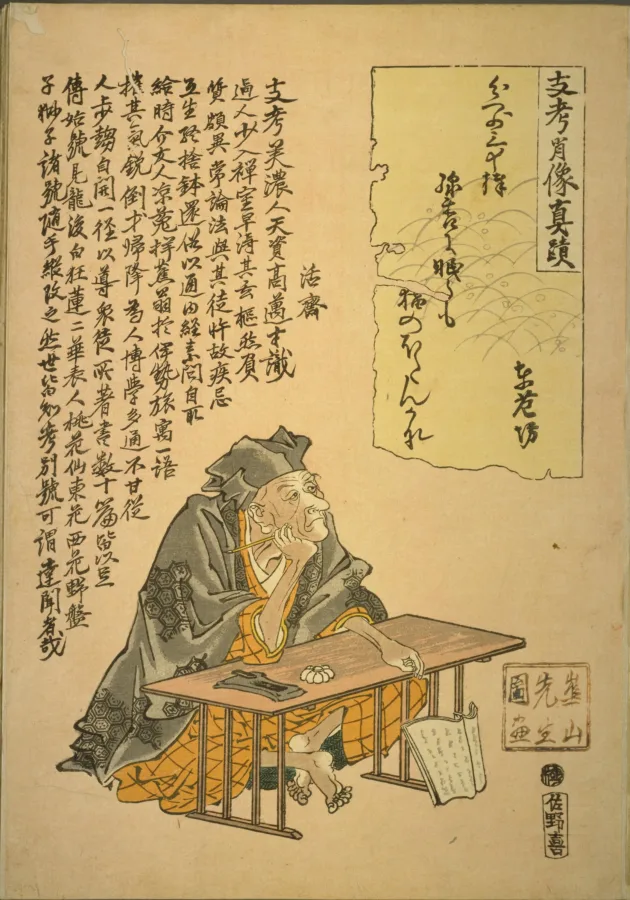 支考肖像真蹟
東花坊
活齋
支考美濃人天資高萬才識
逼人少入禅室早得其玄樞然負
質頗異常論法與其徒忤故疾忌
互生終捨鉢還俗以通内經素問自取
給時介友人凉菟拝蕉翁於伊勢旅寓一語
摧其氣鋭倒才歸降為人博學多通不甘從
人歩趨自開一径以導衆焚所著書数十篇皆以
傳始號見龍後白狂蓮二華表人桃花仙東花西花野盤
子獅子諸號随手縦改之然世皆知考別號可謂達聞者哉
崋山
先生
圖画
佐野喜